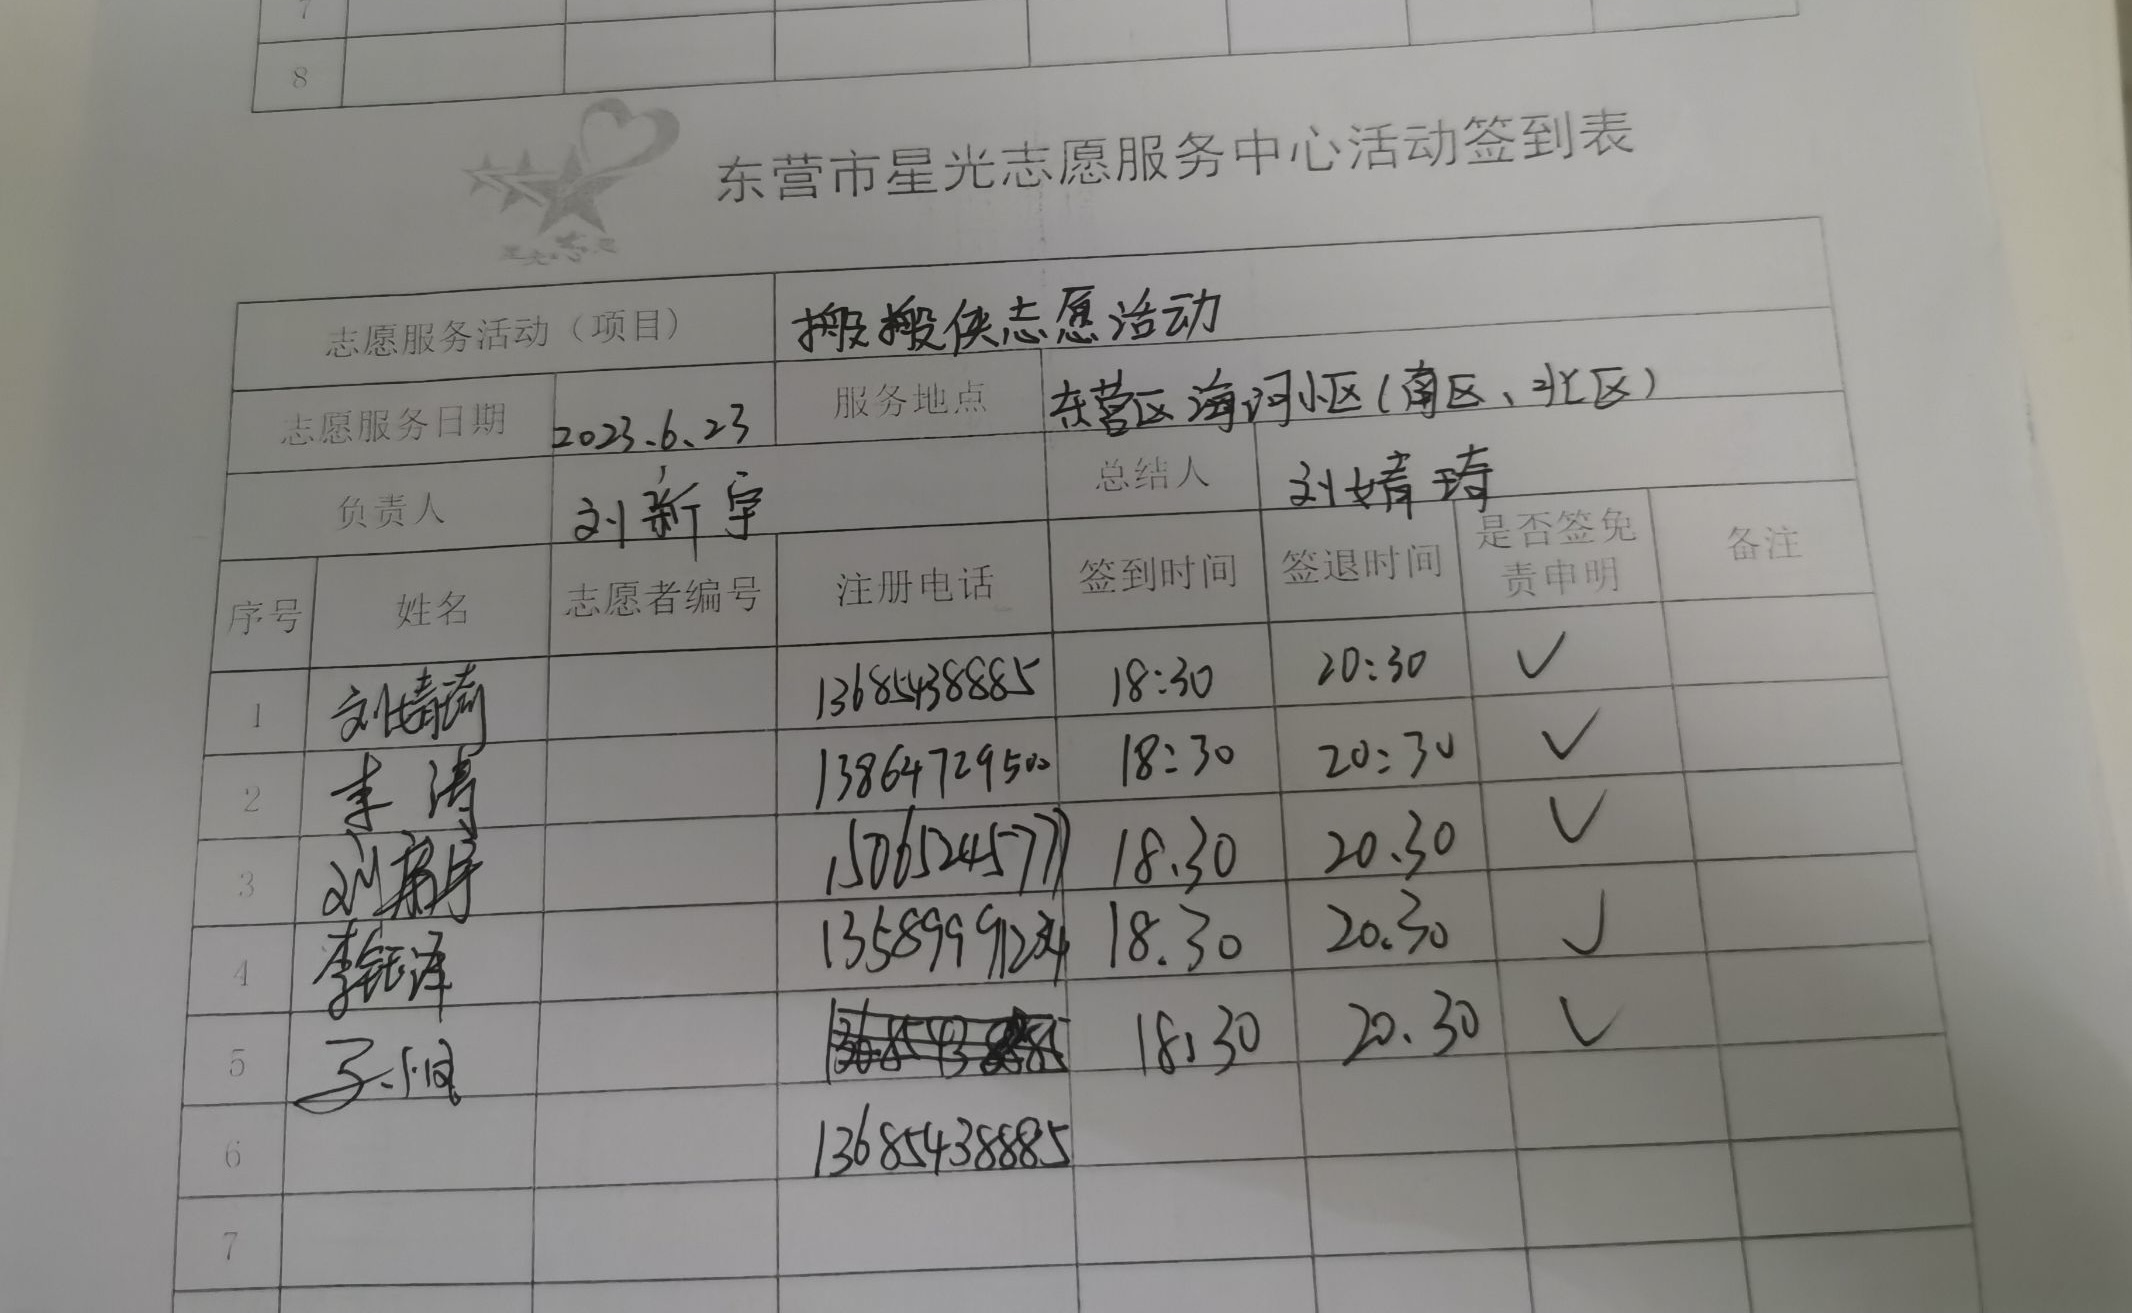 7
8
东营市星光志愿服务中心活动签到表
志愿服务活动（项目） 搬搬侠志愿活动
志愿服务日期 2023.6.23 服务地点 东营区海河小区(南区、北区)
负责人 刘新宇 总结人 刘婧琦
序号 姓名 志愿者编号 注册电话 签到时间 签退时间 是否签免责申明 备注
1 刘婧琦 13685438885 18:30 20:30 ✓
2 李涛 13864729500 18:30 20:30 ✓
3 刘新宇 15065245777 18.30 20.30 ✓
4 李钰泽 13589991234 18.30 20.30 ✓
5 18.30 20.30 ✓
6 13685438885
7